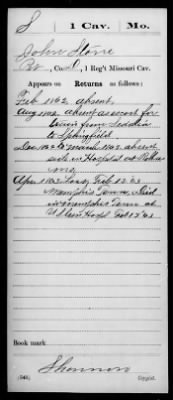 S 1 Cav. Mo.
John Stone
Pvt., Co. C, 1 Reg't Missouri Cav.
Appears on
Returns as follows:
Feb 1862 absent.
Aug 1862 absent as escort for
train from Sedalia
to Springfield
Dec 1862 to March 1863 absent
sick in Hospital at Rolla
Mo.
Apr 1863 Loss, Feb 12 63
Memphis Tenn, Died
in Memphis Tenn at
Hospl Feb 12 63
Book mark
Shannon
(543) Copyist.